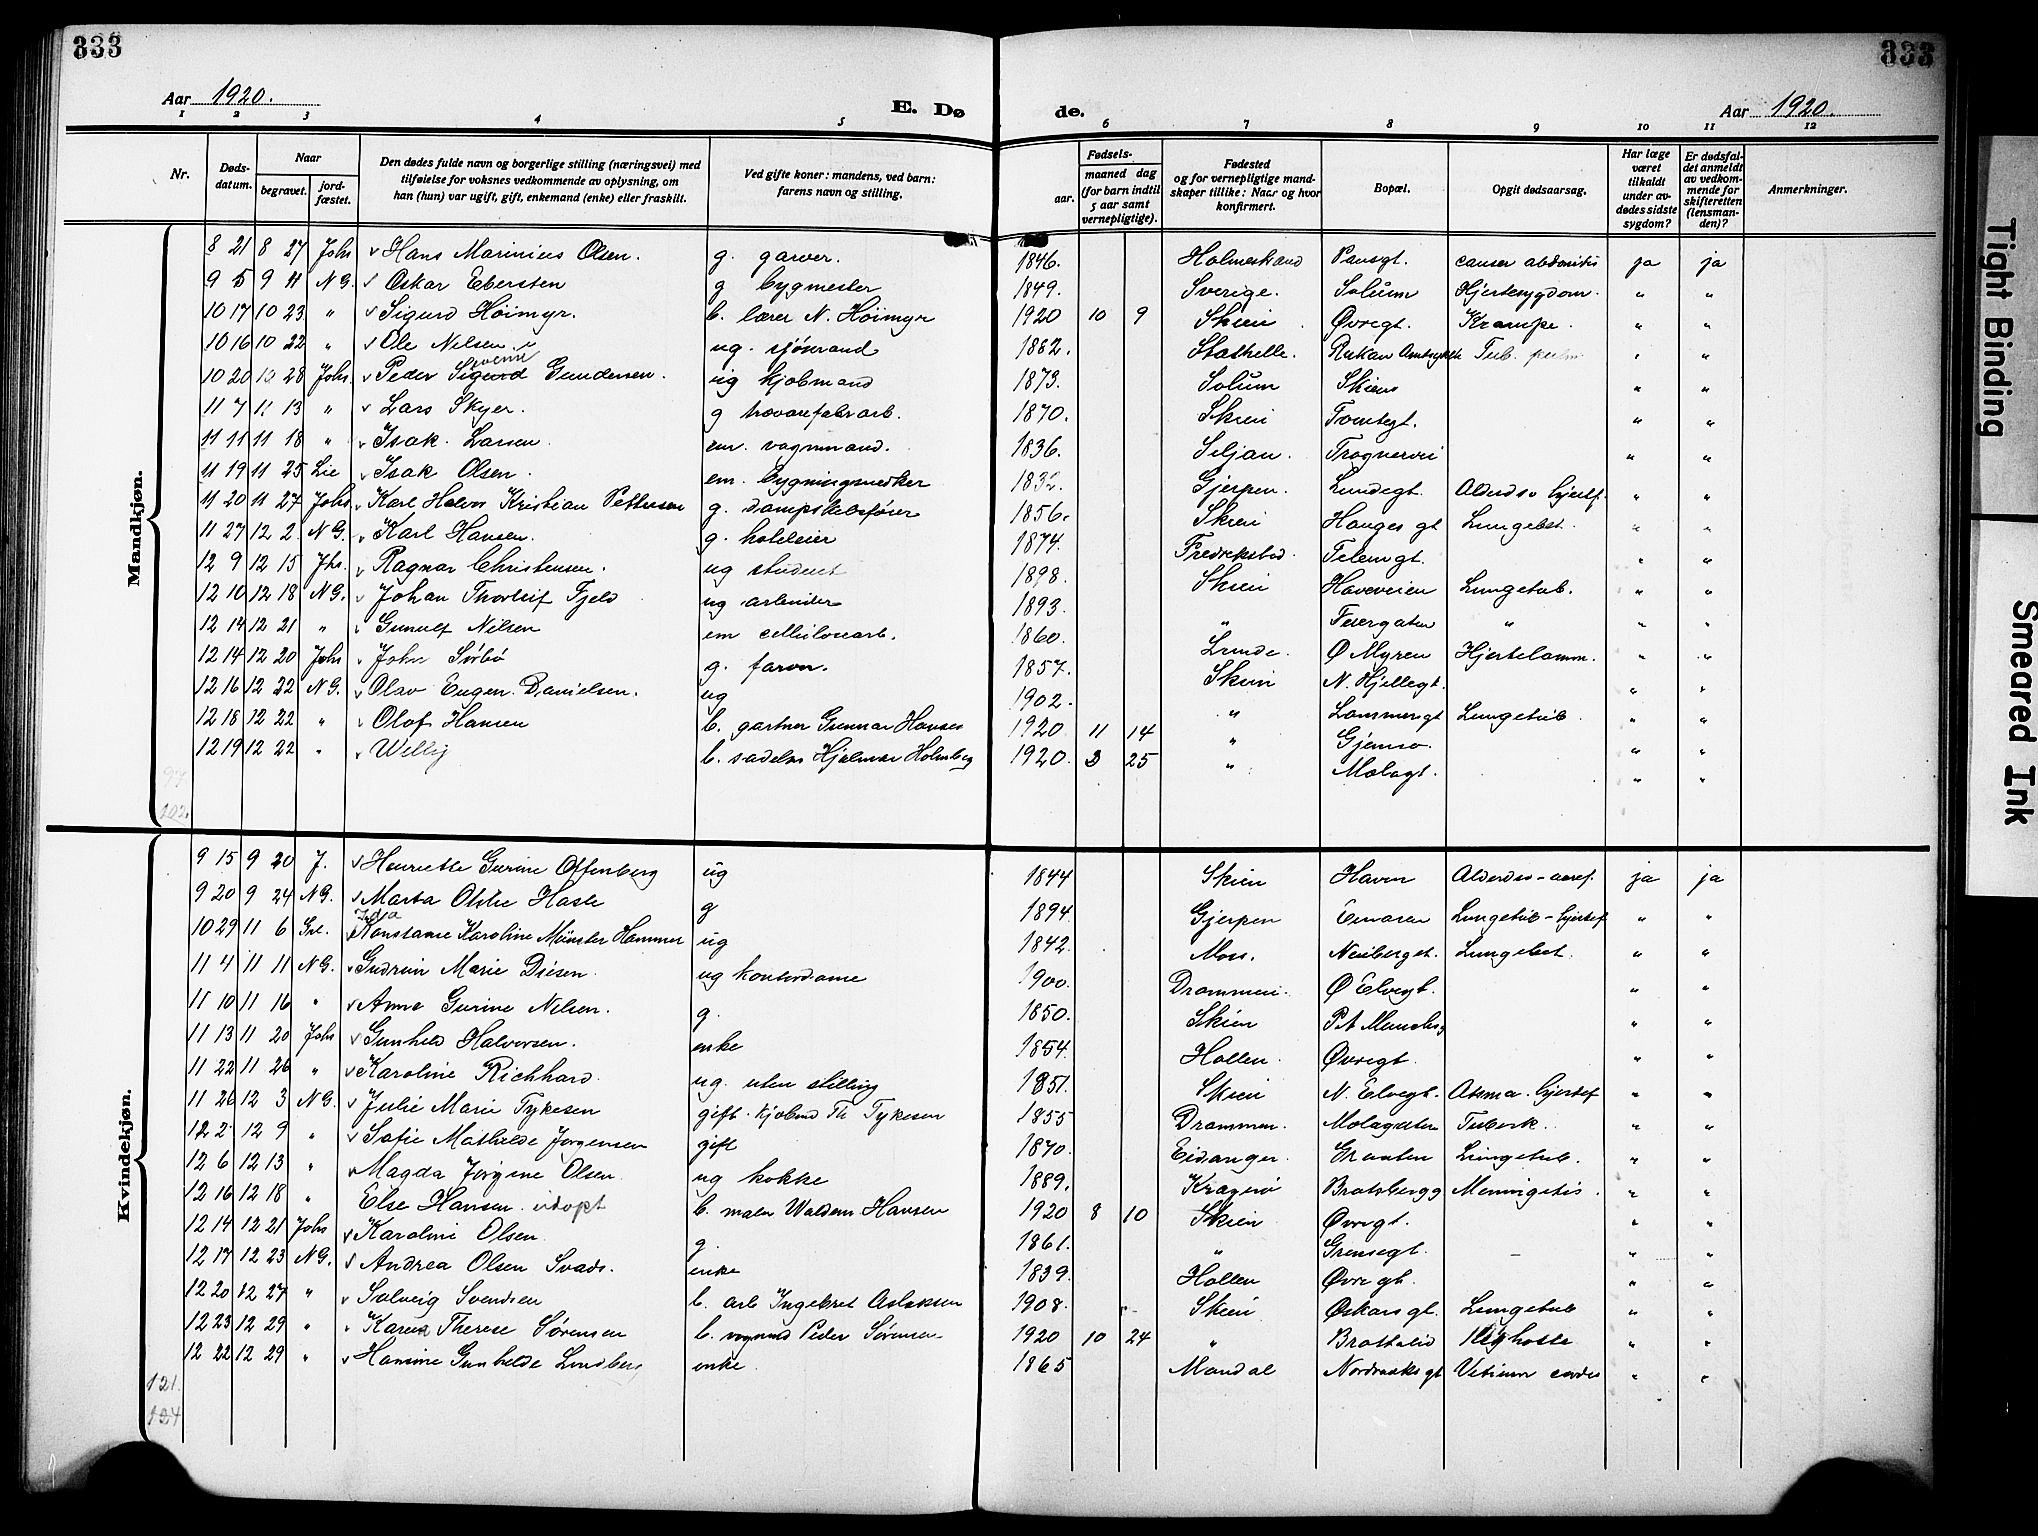 333
333
Aar 1920.
E. Dø
de.
Aar 1920.
1 2 3 4 5 6 7 8 9 10 11 12
Nr.
Dødsdatum.
Naar
begravet.
jordfæstet.
Den dødes fulde navn og borgerlige stilling (næringsvei) med
tilføielse for voksnes vedkommende av oplysning, om
han (hun) var ugift, gift, enkemand (enke) eller fraskilt.
Ved gifte koner: mandens, ved barn:
farens navn og stilling.
Fødsels-
aar. maaned dag
(for barn indtil
5 aar samt
vernepligtige).
Fødested
og for vernepligtige mandskaper tillike: Naar og hvor
konfirmert.
Bopæl.
Opgit dødsaarsag.
Har læge
været
tilkaldt
under avdødes sidste
sygdom?
Er dødsfaldet anmeldt
av vedkommende for
skifteretten
(lensmanden)?
Anmerkninger.
Mandkjøn.
8 21 8 27 Johs Hans Marinius Olsen. g. garver. 1846. Holmestrand Pansgt. cancer abdominis ja ja
9 5 9 11 N G. Oskar Ebersten g bygmester 1849. Sverige. Solum Hjertesygdom. " "
10 17 10 23 " Sigurd Høimyr. b. lærer N. Høimyr 1920 10 9 Skien Øvregt. Krampe. " "
10 16 10 22 " Ole Nelsen ug. sjömand 1882. Stathelle. Rukan Tub. pulm " "
10 20 10 28 Johs. Peder Sigurd Gundersen. ug kjøbmand 1873. Solum Skien " "
11 7 11 13 " Lars Skyer. g trævarefabrarb. 1870. Skien Tomtegt. " "
11 11 11 18 " Isak Larsen em. vognmand. 1836. Siljan. Trognervei " "
11 19 11 25 Lie Isak Olsen. em. bygningssnedker 1832. Gjerpen. Lundegt. Alderds. hjertef. " "
11 20 11 27 Johs Karl Halvor Kristian Pettersen g. dampskibsfører 1856. Skien Hauges gt Lungebet. " "
11 27 12 2. N G. Karl Hansen. g. hoteleier 1874. Fredrikstad. Telemgt. " "
12 9 12 15 Jhs. Ragnar Christensen. ug student 1898. Skien Haveveien Lungetub. " "
12 10 12 18 N G. Johan Thorleif Fjeld ug arbeider 1893. " Feiergaten " " "
12 14 12 21 " Gunulf Nilsen em cellulosearb. 1860. Lunde. Ø Myren Hjertelamm. " "
12 14 12 20 Johs John Sørbø g. farver. 1857. Skien N. Hjellegt. " "
12 16 12 22 N G. Olav Eugen Danielsen. ug 1902. " Lammergt Lungetub. " "
12 18 12 22 " Olof Hansen b. gartner Gunnar Hansen 1920 11 14 " Gjemsø. " "
12 19 12 22 " Willy b. sadelm Hjalmar Holmberg 1920. 3 25 " Molagt. " "
97
102.
Kvindekjøn.
9 15 9 20 J. Henriette Gurine Offenberg ug 1844 Skien Haven Alderds-aaref. ja ja
9 20 9 24 N G. Marta Otilie Hasle g 1894. Gjerpen Lungetub - hjertef " "
10 29 11 6 Konstanse Karoline Münster Hammer ug 1842. Moss. Neubergst. Lungebet. " "
11 4 11 11 N G. Gudrun Marie Disen. ug kontordame 1900. Drammen. Ø Elvegt. " "
11 10 11 16 " Anne Gurine Nilsen. g. 1850. Skien P A Munchsg " "
11 13 11 20 Johs Gunhild Halvorsen. enke 1854. Hollen. Øvregt. " "
11 22 11 26 " Karoline Richhard. ug. uten stilling 1851. Skien N. Elvegt. Astma. hjertef " "
11 26 12 3 N G. Julie Marie Tykesen gift. kjøbmd Th Tykesen 1855 Drammen. Molagaten Tuberk. " "
12 2 12 9 " Sofie Mathilde Jørgensen gift 1870. Eidanger. Graaten Lungetub. " "
12 6 12 13 " Magda Jørgine Olsen ug kokke 1889. Kragerø Bratsbergg Meningitis. " "
12 16 12 18 " Else Hansen. udøpt b. maler Waldem Hansen 1920 8 10 Skien Øvregt. " "
12 14 12 21 Johs Karoline Olsen. g. 1861. " Grensegt. - " "
12 17 12 23 N G. Andrea Olsen Svads. enke 1839. Hollen Øvregt. " "
12 20 12 27 " Solveig Svendsen b. arb Ingebret Aslaksen 1908. Skien Oskarsgt. Lungetub " "
12 23 12 29 " Karen Therese Sørensen b. vognmd Peder Sørensen 1920 10 24 " Bratsalid Kighoste " "
12 22 12 29 " Hanine Gunhilde Lindberg enke. 1865 Mandal Nordraaks gt Vitium cordis " "
121.
124
Tight Binding
Smeared Ink